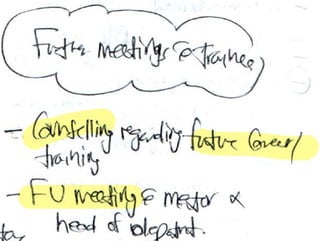 Future meetings c̄ trainee
- Counselling regarding future career/
training
- FU meeting c̄ mentor &
head of